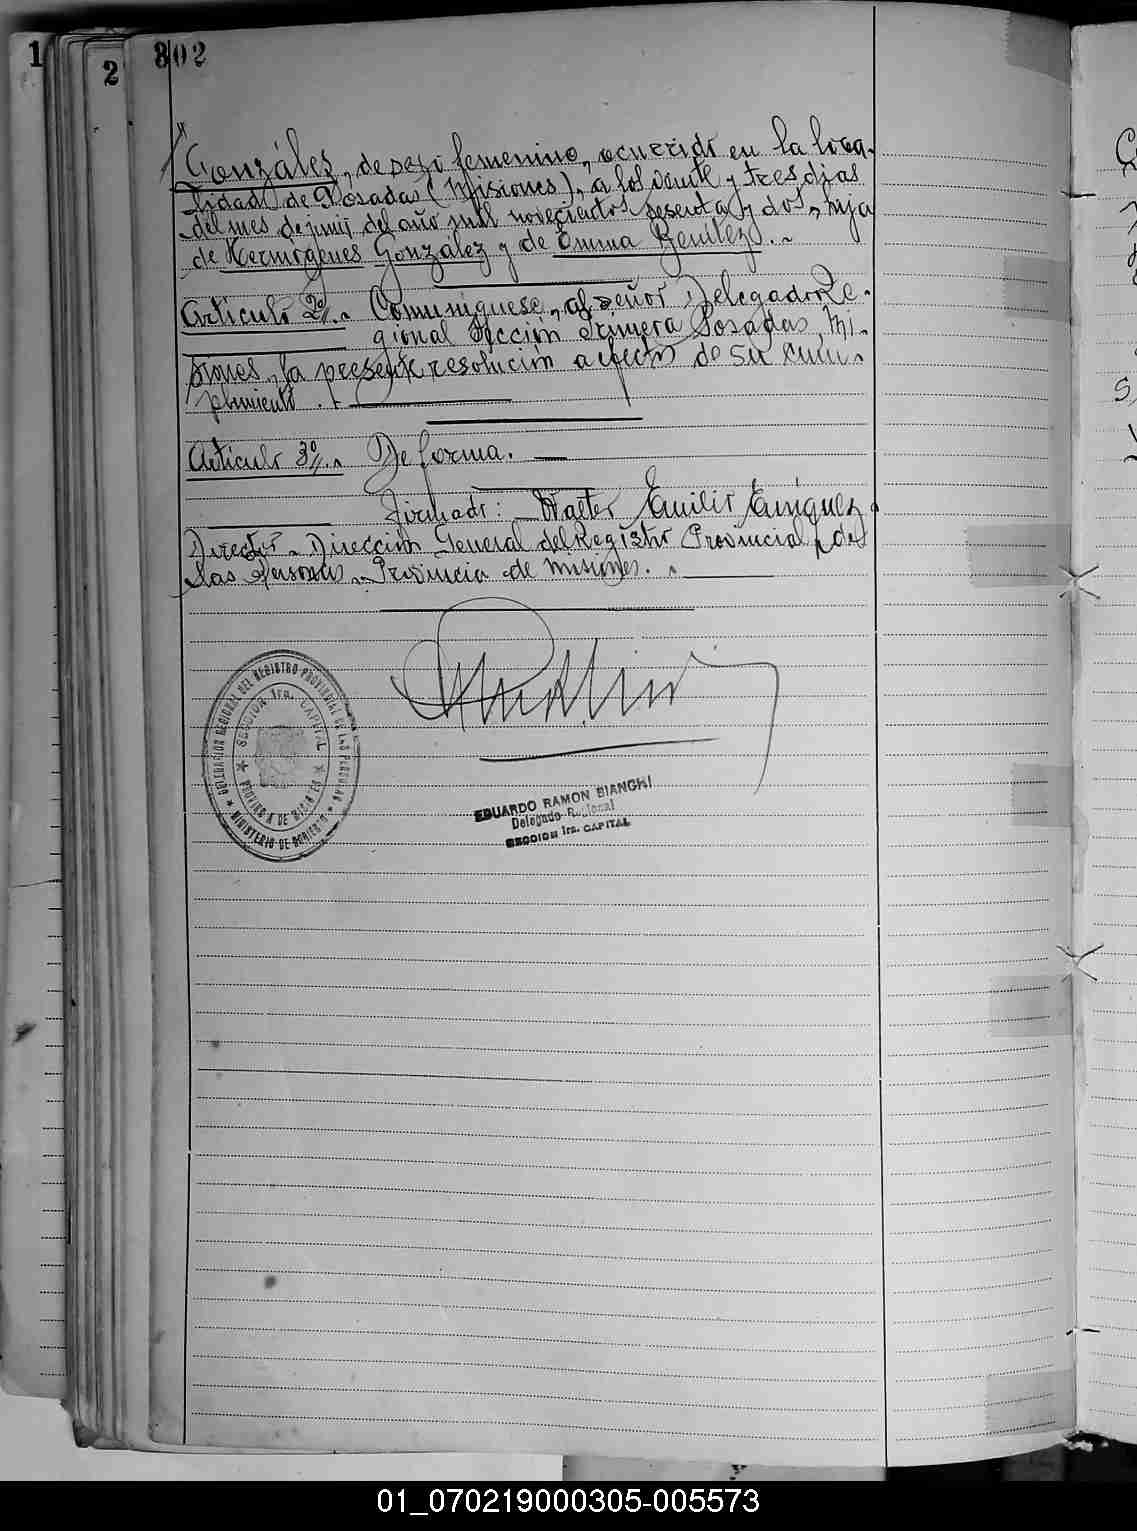 1
2
802
González, de sexo femenino, ocurrido en la loca-
lidad de Posadas (Misiones), a los veinte y tres días
del mes de junio del año mil novecientos sesenta y dos, hija
de Hermógenes González y de Emma Benítez.-
Artículo 2º.- Comuníquese, al señor Delegado Re-
gional Sección Primera Posadas, Mi-
siones, la presente resolución a efectos de su cum-
plimiento.-
Artículo 3º.- De forma.-
Firmado: Walter Emilio Enríquez
Director - Dirección General del Registro Provincial de
las Personas - Provincia de Misiones.-
DELEGACION REGIONAL DEL REGISTRO PROVINCIAL DE LAS PERSONAS
SECCION 1ra. CAPITAL
PROVINCIA DE MISIONES
MINISTERIO DE GOBIERNO
EDUARDO RAMON BIANCHI
Delegado Regional
SECCION 1ra. CAPITAL
01_070219000305-005573